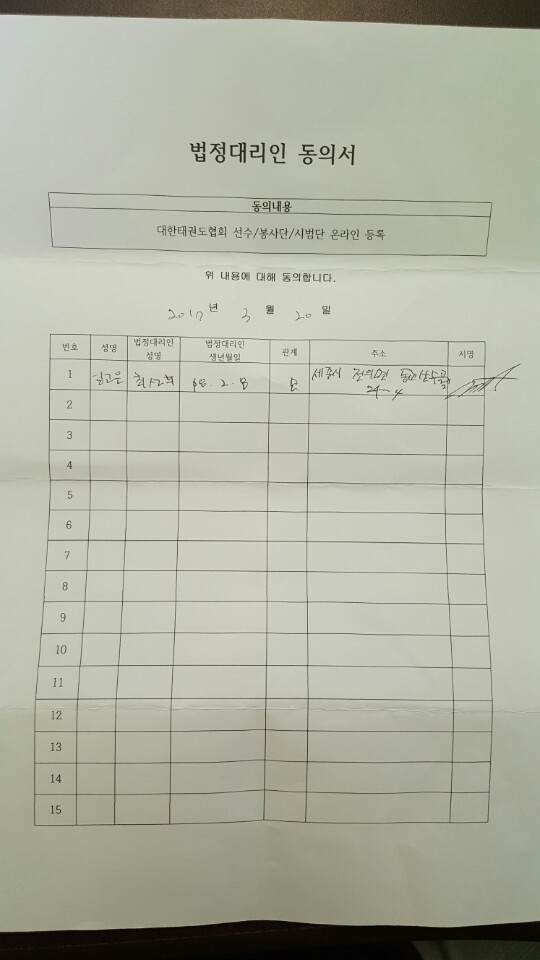 법정대리인 동의서
동의내용
대한태권도협회 선수/봉사단/시범단 온라인 등록
위 내용에 대해 동의합니다.
2017년 3월 20일
번호 성명 법정대리인 성명 법정대리인 생년월일 관계 주소 서명
1 68. 2. 8 모 세종시 전의면
29-4
2
3
4
5
6
7
8
9
10
11
12
13
14
15